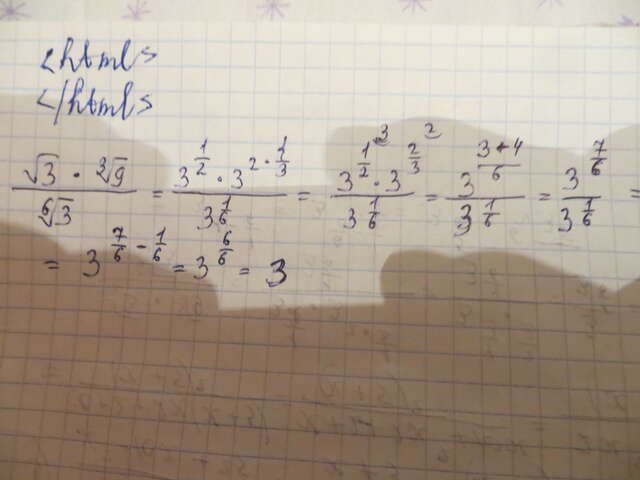 <html>
</html>
\frac{\sqrt{3} \cdot \sqrt[3]{9}}{\sqrt[6]{3}} = \frac{3^{\frac{1}{2}} \cdot 3^{2 \cdot \frac{1}{3}}}{3^{\frac{1}{6}}} = \frac{3^{\frac{1}{2}^{3}} \cdot 3^{\frac{2}{3}^{2}}}{3^{\frac{1}{6}}} = \frac{3^{\frac{3+4}{6}}}{3^{\frac{1}{6}}} = \frac{3^{\frac{7}{6}}}{3^{\frac{1}{6}}} =
= 3^{\frac{7}{6} - \frac{1}{6}} = 3^{\frac{6}{6}} = 3